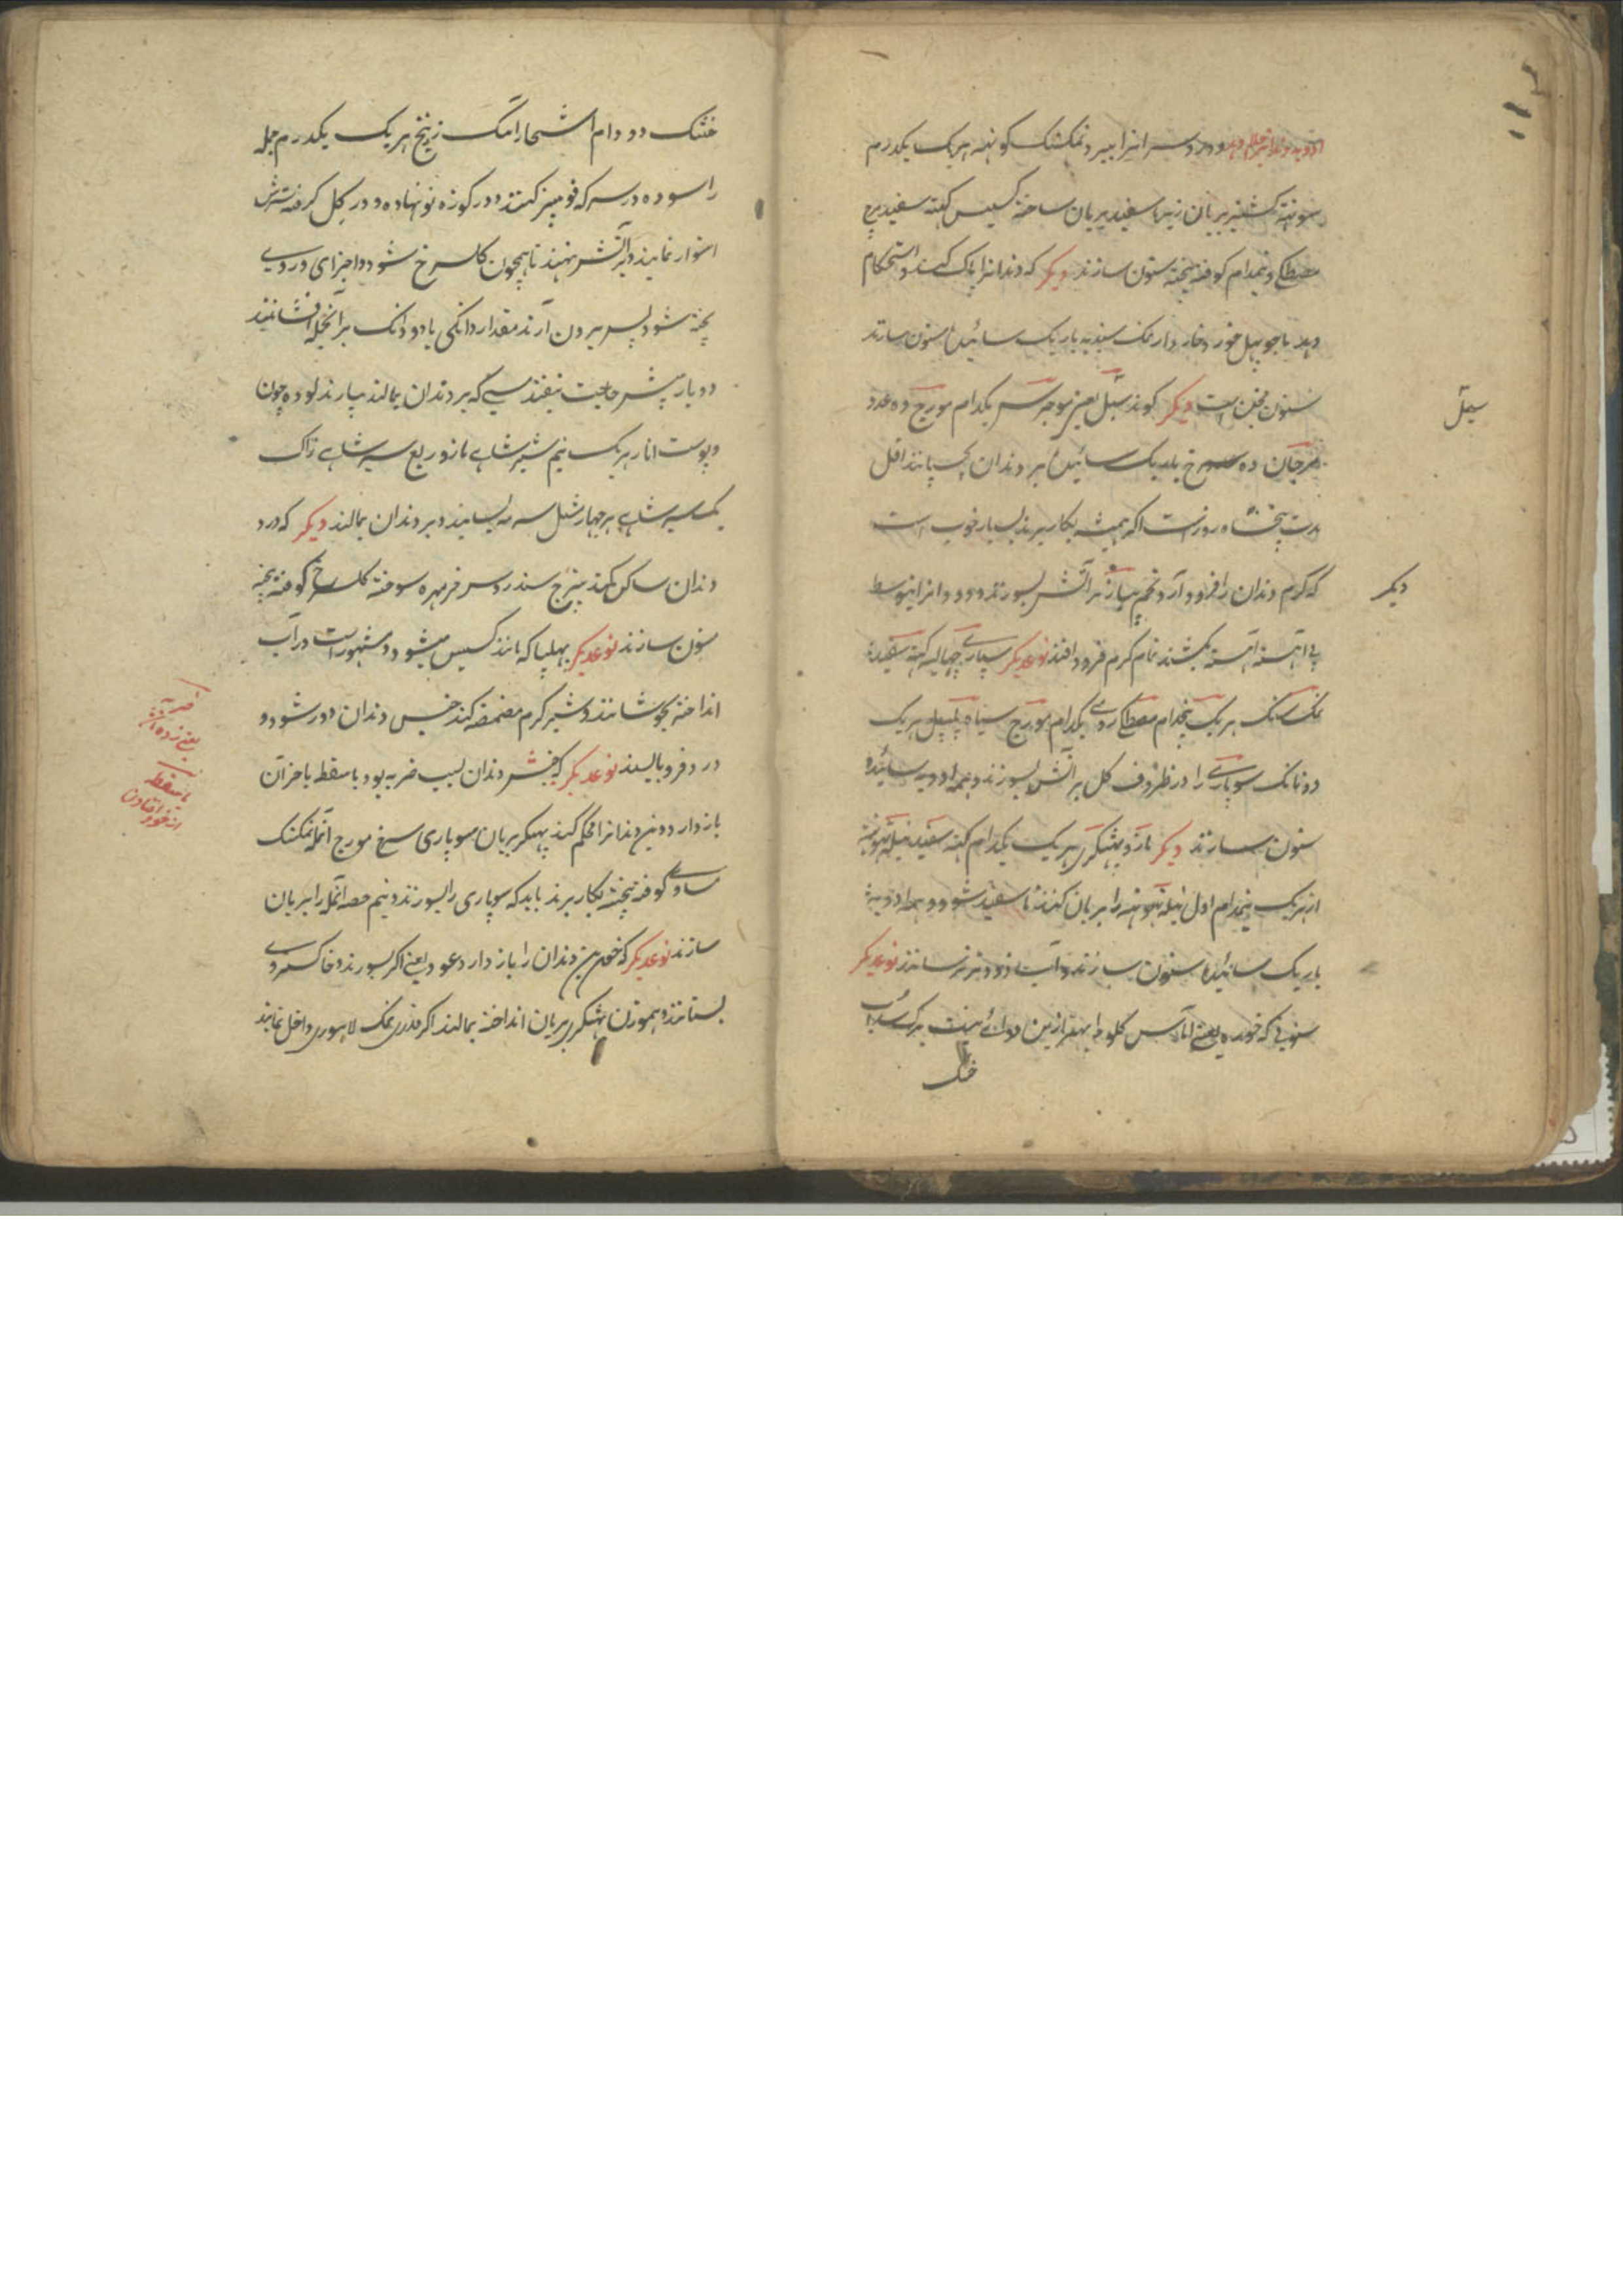 ادویه دندانرا جلا دهد و درد سر انرا ببرد نمکسنگ کوٹهه هریک یکدرم
سونٹهه کشنیز بریان زیرا سفید بریان ساخته کسیس کتهه سفید
مصطکی ونیمدام کوفته بیخته سنون سازند دیکر که دندانرا پاک کند و استحکام
دهد باجو پهل خورد خاردار نمک سیندیه باریک سائیده سنون سازند
سنون مجن است دیکر کوند سنبل یعنی موچرس یکدام مورج ده عدد
مرجان ده سرخ باریک سائیده بر دندان بچسپانند اقل
مدت پنجاه روز است اکر همیشه بکار برند بسیار خوب است
که کرم دندان را فرود آرد تخم پیاز بر آتش بسوزند و دود انرا بتوسط
نی آهسته آهسته بکشند تمام کرم فرود افتد نوعدیکر سپاری چهالیه کتهه سفید
نمک سنک هریک پنجدام مصطکی رومی یکدام مورج سیاه پیپل هریک
دو ٹانک سوپاری را در ظروف کل بر آتش بسوزند و همه ادویه سائیده
سنون سازند دیکر مازو پهٹکری هریک یکدام کتهه سفید نیله تهوتهه
از هریک نیمدام اول نیله تهوتهه را بریان کنند تا سفید شود و همه ادویه
باریک سائیده سنون سازند و آب زود نرسانند نوعدیکر
سنونی که خوره یعنی آماس کلو را بهتر ازین دوائی نیست برک سداب
خشک
سینبل
دیکر
خشک دو دام اشخار انک زرنیخ هریک یکدرم جمله
را سوده در سرکه قومیز کنند و در کوزه نو نهاده و در کل کرفته سرش
استوار نمایند و بر آتش نهند تا همچون کل سرخ شود و اجزای در وی
پخته شود پس بیرون آرند مقدار دانکی یا دو دانک بر آنجمله افشانند
دو بار بیشتر حاجت نیفتد مسی که بر دندان بمالند بیارند لوده چون
و پوست انار هریک نیم سیر شاهی مازو ربع سیر شاهی زاک
یکسیر شاهی هر چهار مثل سرمه بسایند و بر دندان بمالند دیکر که درد
دندان ساکن کند بترج سندروس خرمهره سوخته کلسرخ کوفته بیخته
سنون سازند نوعدیکر بهلیا که مانند کسیس میشود و مشهور است در آب
انداخته بجوشانند و شیر کرم مضمضه کند جنبیش دندان دور شود و
درد فرو بایستد نوعدیکر که جنبش دندان بسبب ضربه بود یا سقطه یا خز آن
باز دارد و بن دندانرا محکم کند پهٹکری بریان سوپاری سرخ مورج آمله نمکسنک
مساوی کوفته بیخته بکار برند باید که سوپاری را بسوزند و نیم حصه آمله را بریان
سازند نوعدیکر که خون بن دندان را باز دارد عود یعنی اکر بسوزند و خاکستر وی
بستانند و هموزن پهٹکری بریان انداخته بمالند اکر قدری نمک لاهوری داخل نمایند
ضربه
یعنی زده
یا سقطه
از خود افتادن